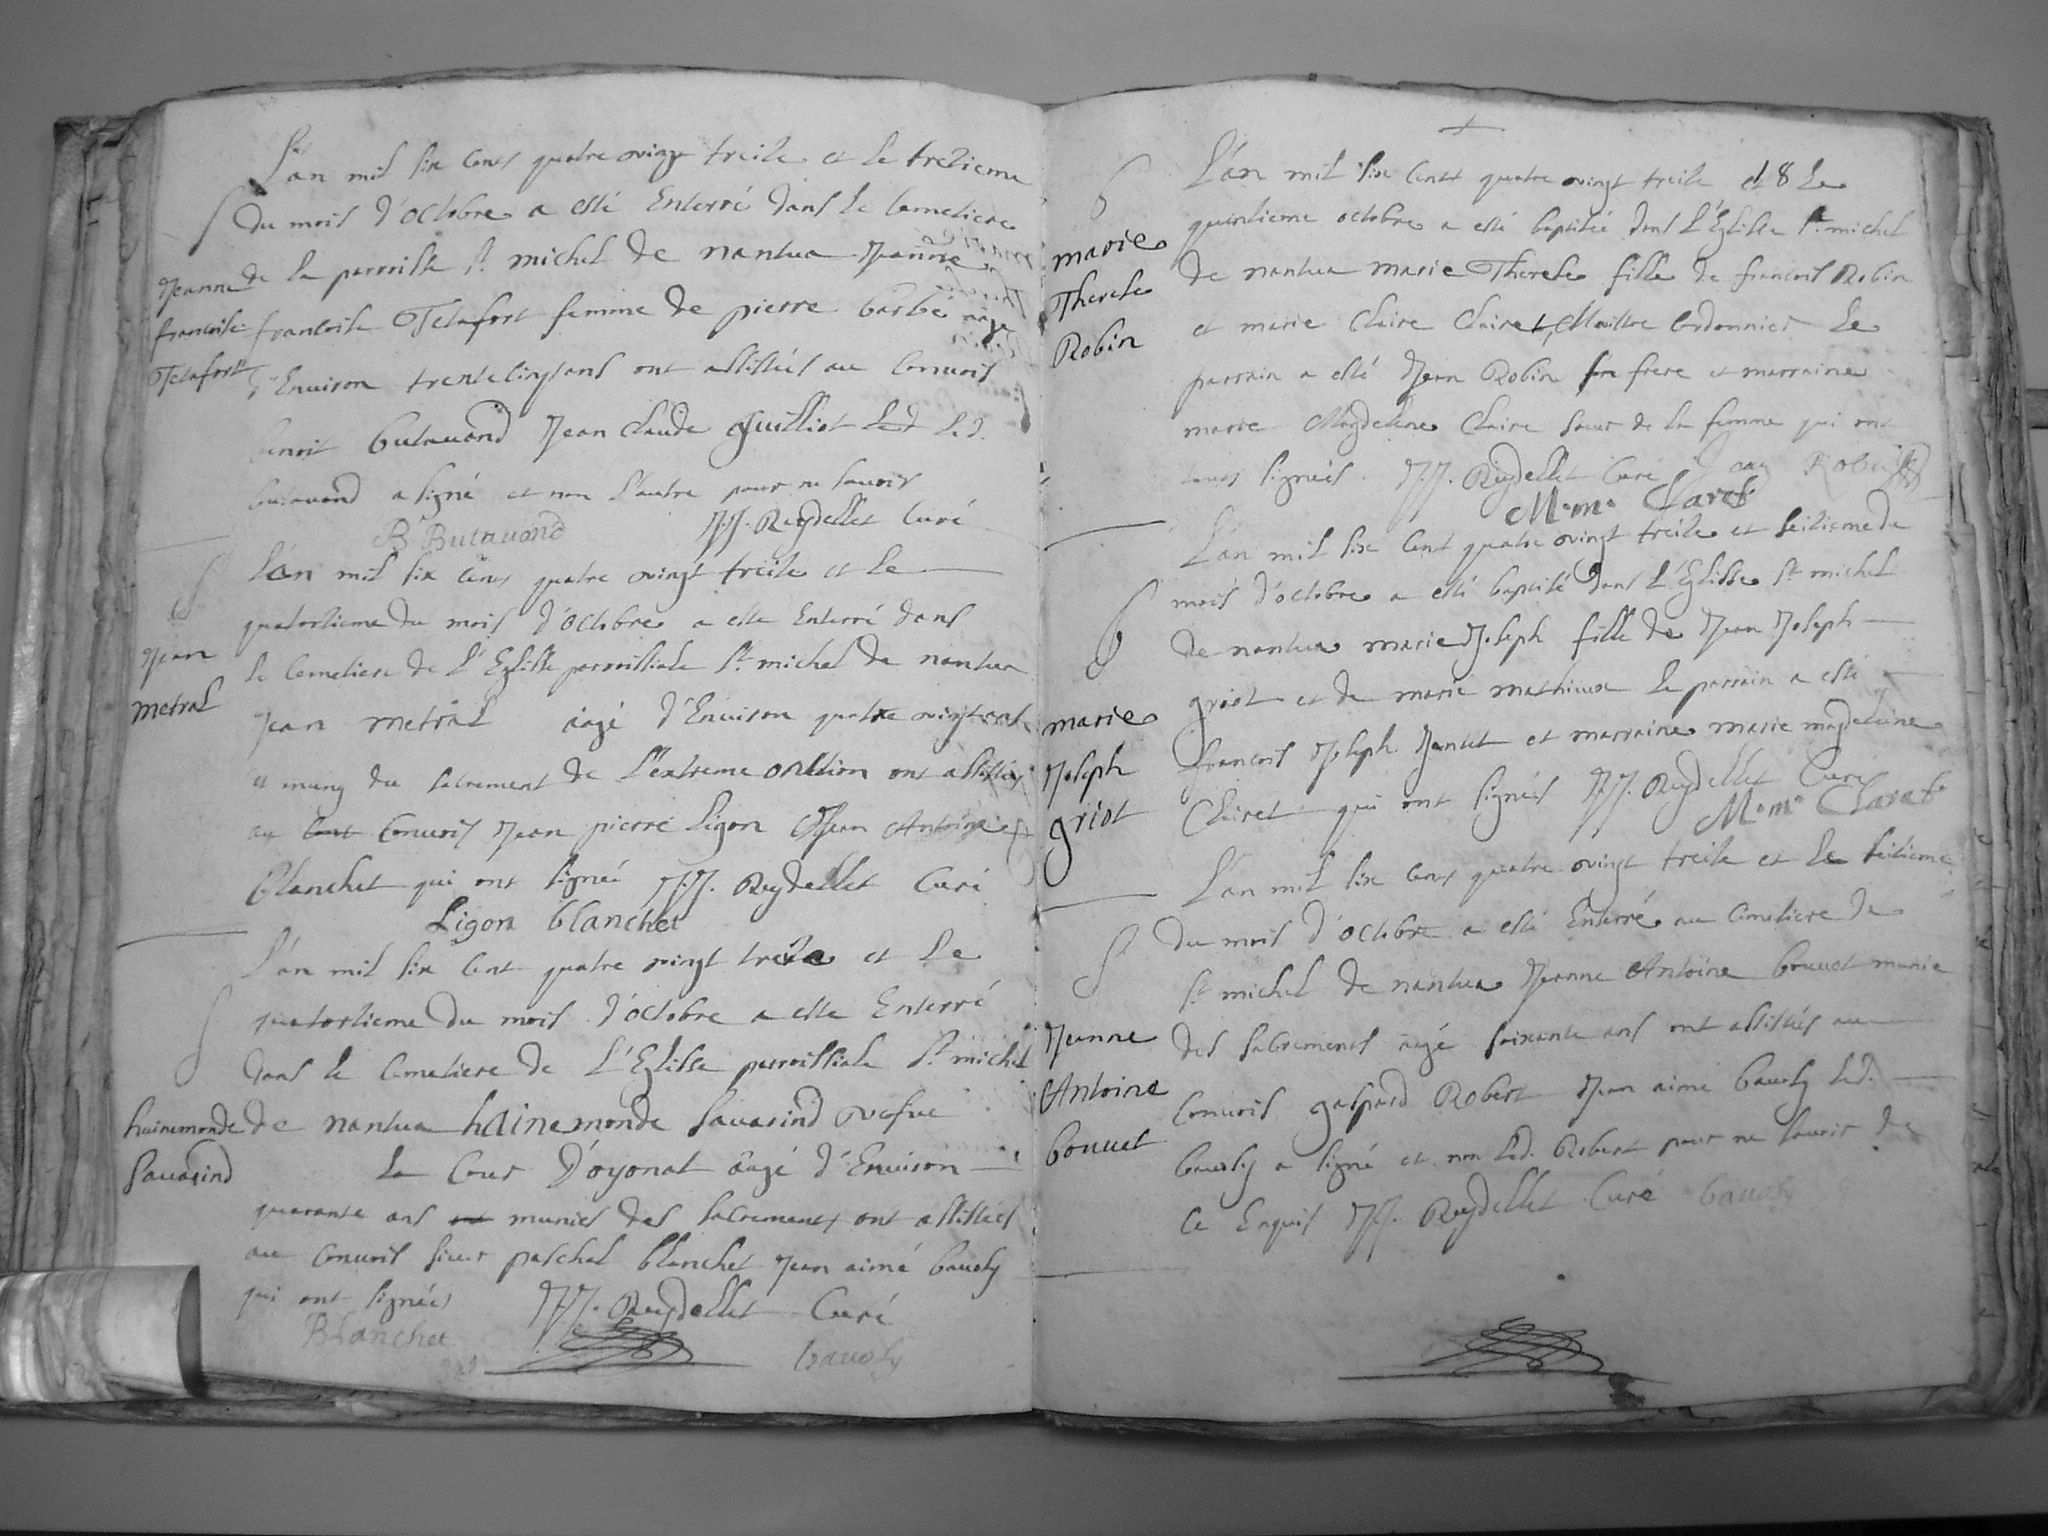 L'an mil six cents quatre vingt treize et le trezieme
du mois d'octobre a esté Enterré dans le Cemetiere
de la parroisse St michel de nantua Jeanne
francoise Tetafort femme de pierre barbé
d'Environ trentecinq ans ont assistés au Convois
benoit butauand Jean Claude guilliot led.
butauand a signé et non l'autre pour ne savoir
B Butauand JJ. Reydellet Curé
Jeanne
francoise
Tetafort
L'an mil six cents quatre vingt treize et le
quatorzieme du mois d'octobre a este Enterré dans
le Cemetiere de l'Eglisse parroissiale St michel de nantua
Jean metral aagé d'Environ quatre vingt
et muny du sacrement de l'extreme onction ont assistés
au Convois Jean pierre Ligon Jean Antoine
Blanchet qui ont signé JJ. Reydellet Curé
Ligon blanchet
Jean
metral
L'an mil six cent quatre vingt treize et le
quatorzieme du mois d'octobre a este Enterré
dans le Cemetiere de l'Eglisse parroissiale St michel
de nantua hainemonde Sauarind vefue
La Cour D'oyonat aagé d'Environ
quarante ans munies des sacrements ont assistés
au Convois sieur paschal blanchet Jean aimé bauoly
qui ont signés JJ. Reydellet Curé
Blanchet bauoly
hainemonde
Sauarind
L'an mil six cents quatre vingt treize et le
quinzieme octobre a esté baptisée dans l'Eglisse St michel
de nantua marie Therese fille de francois Robin
et marie Claire Clairet Maistre Cordonnier le
parrain a esté Jean Robin son frere et marraine
marie Magdeleine Claire soeur de la femme qui ont
tous signés. JJ. Reydellet Curé Jean Robin
M. m. Claret
marie
Therese
Robin
L'an mil six cent quatre vingt treize et seizieme du
mois d'octobre a esté baptisé dans l'Eglisse St michel
de nantua marie Joseph fille de Jean Joseph
griot et de marie mathieux le parrain a esté
francois Joseph Jantet et marraine marie magdeleine
Clairet qui ont signés JJ. Reydellet Curé
M. m. Claret
marie
Joseph
griot
L'an mil six cents quatre vingt treize et le seizieme
du mois d'octobre a esté Enterré au Cimetiere de
St michel de nantua Jeanne Antoine bouuet munie
des sacrements aagé soixante ans ont assistés au
Convois gaspard Robert Jean aimé bauoly led.
bauoly a signé et non led. Robert pour ne savoir de
ce Enquis JJ. Reydellet Curé bauoly
Jeanne
Antoine
bouuet